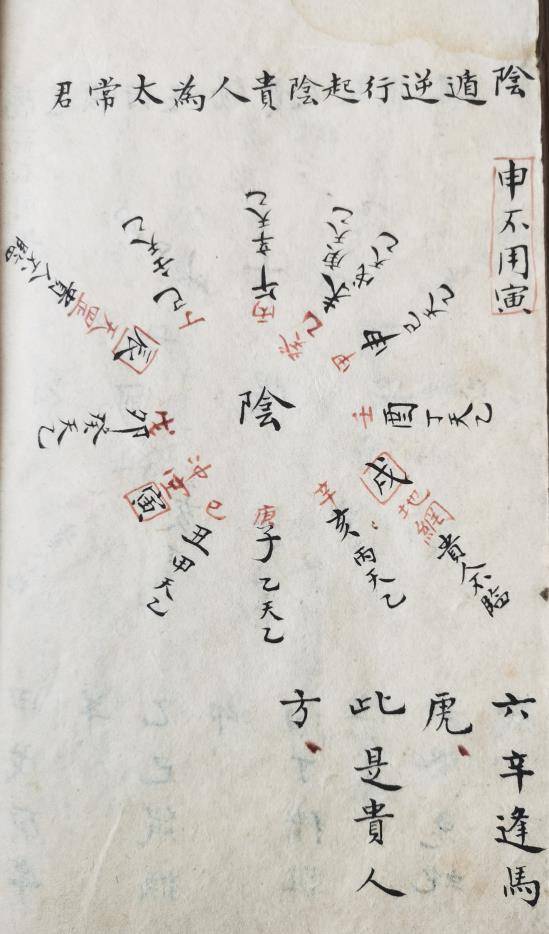 陰遁逆行起陰貴人為太常君
申不用寅
陰
庚子乙天乙
己丑甲天乙
寅
戊卯癸天乙
辰
貴人不臨
丙午辛天乙
未庚天乙
甲申己天乙
壬酉丁天乙
戌地網貴人不臨
辛亥丙天乙
六辛逢馬
虎
此是貴人
方